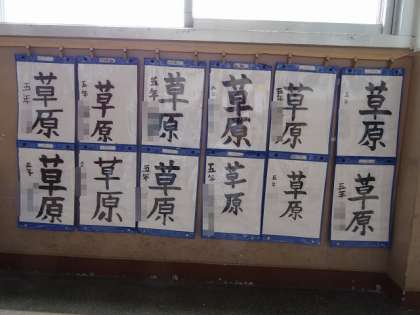 草原
五年
草原
五年
草原
五年
草原
草原
五年
草原
草原
五年
草原
草原
五年
草原
五年
草原
草原
五年
草原